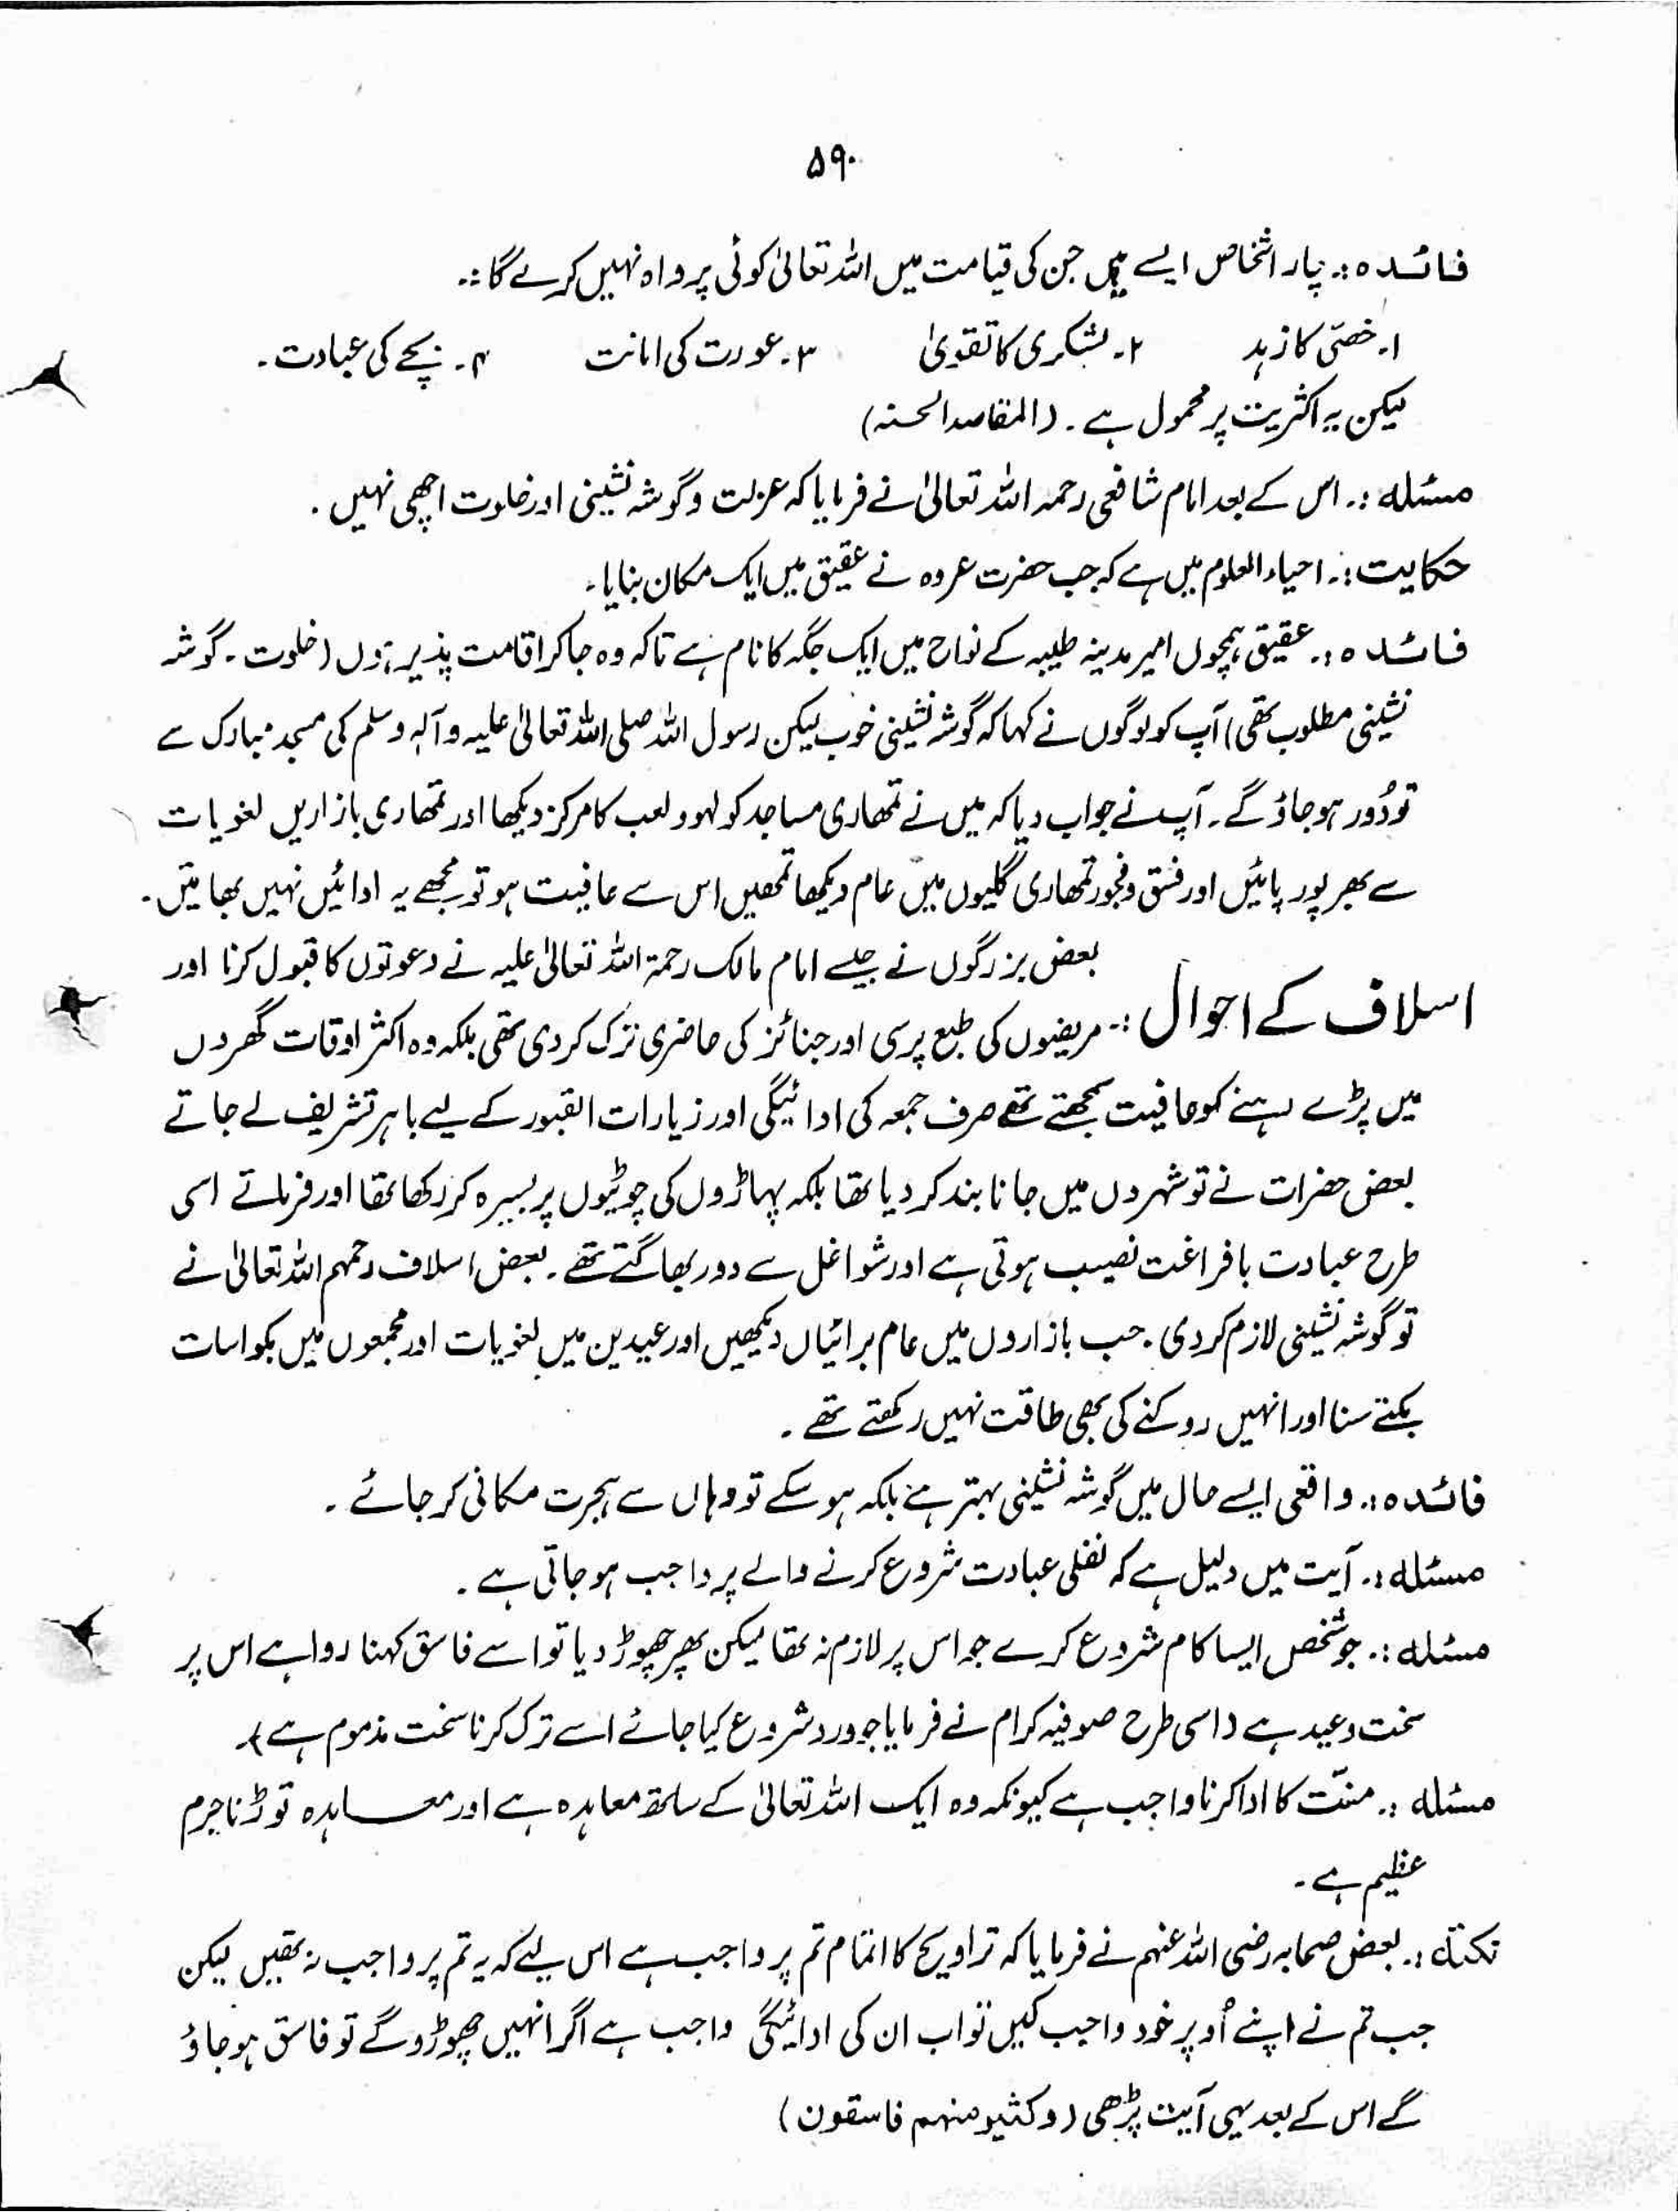 ۵۹۰
فائدہ :۔ چار اشخاص ایسے ہیں جن کی قیامت میں اللہ تعالیٰ کوئی پرواہ نہیں کرے گا :۔
۱۔ خصّی کا زہد ۲۔ لشکری کا تقویٰ ۳۔ عورت کی امانت ۴۔ بچے کی عبادت ۔
لیکن یہ اکثریت پر محمول ہے ۔ (المقاصد الحسنہ)
مسئلہ :۔ اس کے بعد امام شافعی رحمہ اللہ تعالیٰ نے فرمایا کہ عزلت و گوشہ نشینی اور خلوت اچھی نہیں ۔
حکایت :۔ احیاء العلوم میں ہے کہ جب حضرت عروہ نے عقیق میں ایک مکان بنایا ۔
فائدہ :۔ عقیق ہمچوں امیر مدینہ طیبہ کے نواح میں ایک جگہ کا نام ہے تاکہ وہ جا کر اقامت پذیر ہوں (خلوت ۔ گوشہ
نشینی مطلوب تھی) آپ کو لوگوں نے کہا کہ گوشہ نشینی خوب لیکن رسول اللہ صلی اللہ تعالیٰ علیہ وآلہ وسلم کی مسجد مبارک سے
تو دُور ہو جاؤ گے ۔ آپ نے جواب دیا کہ میں نے تمھاری مساجد کو لہو و لعب کا مرکز دیکھا اور تمھاری بازاریں لغویات
سے بھر پور پائیں اور فسق و فجور تمھاری گلیوں میں عام دیکھا تمھیں اس سے عافیت ہو تو مجھے یہ ادائیں نہیں بھاتیں ۔
بعض بزرگوں نے جیسے امام مالک رحمۃ اللہ تعالیٰ علیہ نے دعوتوں کا قبول کرنا اور
اسلاف کے احوال :۔ مریضوں کی طبع پرسی اور جنائز کی حاضری ترک کر دی تھی بلکہ وہ اکثر اوقات گھروں
میں پڑے رہنے کو عافیت سمجھتے تھے صرف جمعہ کی ادائیگی اور زیارات القبور کے لیے باہر تشریف لے جاتے
بعض حضرات نے تو شہروں میں جانا بند کر دیا تھا بلکہ پہاڑوں کی چوٹیوں پر بسیرہ کر رکھا تھا اور فرماتے اسی
طرح عبادت با فراغت نصیب ہوتی ہے اور شواغل سے دور بھاگتے تھے ۔ بعض اسلاف رحمہم اللہ تعالیٰ نے
تو گوشہ نشینی لازم کر دی ۔ جب بازاروں میں عام برائیاں دیکھیں اور عیدین میں لغویات اور مجمعوں میں بکواسات
بکتے سنا اور انہیں روکنے کی بھی طاقت نہیں رکھتے تھے ۔
فائدہ :۔ واقعی ایسے حال میں گوشہ نشینی بہتر ہے بلکہ ہو سکے تو وہاں سے ہجرت مکانی کر جائے ۔
مسئلہ :۔ آیت میں دلیل ہے کہ نفلی عبادت شروع کرنے والے پر واجب ہو جاتی ہے ۔
مسئلہ :۔ جو شخص ایسا کام شروع کرے جو اس پر لازم نہ تھا لیکن پھر چھوڑ دیا تو اسے فاسق کہنا روا ہے اس پر
سخت وعید ہے (اسی طرح صوفیہ کرام نے فرمایا جو ورد شروع کیا جائے اسے ترک کرنا سخت مذموم ہے)۔
مسئلہ :۔ منّت کا ادا کرنا واجب ہے کیونکہ وہ ایک اللہ تعالیٰ کے ساتھ معاہدہ ہے اور معاہدہ توڑنا جرم
عظیم ہے ۔
نکتہ :۔ بعض صحابہ رضی اللہ عنہم نے فرمایا کہ تراویح کا اتمام تم پر واجب ہے اس لیے کہ یہ تم پر واجب نہ تھیں لیکن
جب تم نے اپنے اُوپر خود واجب کیں تو اب ان کی ادائیگی واجب ہے اگر انہیں چھوڑو گے تو فاسق ہو جاؤ
گے اس کے بعد یہی آیت پڑھی (وکثیر منہم فاسقون)